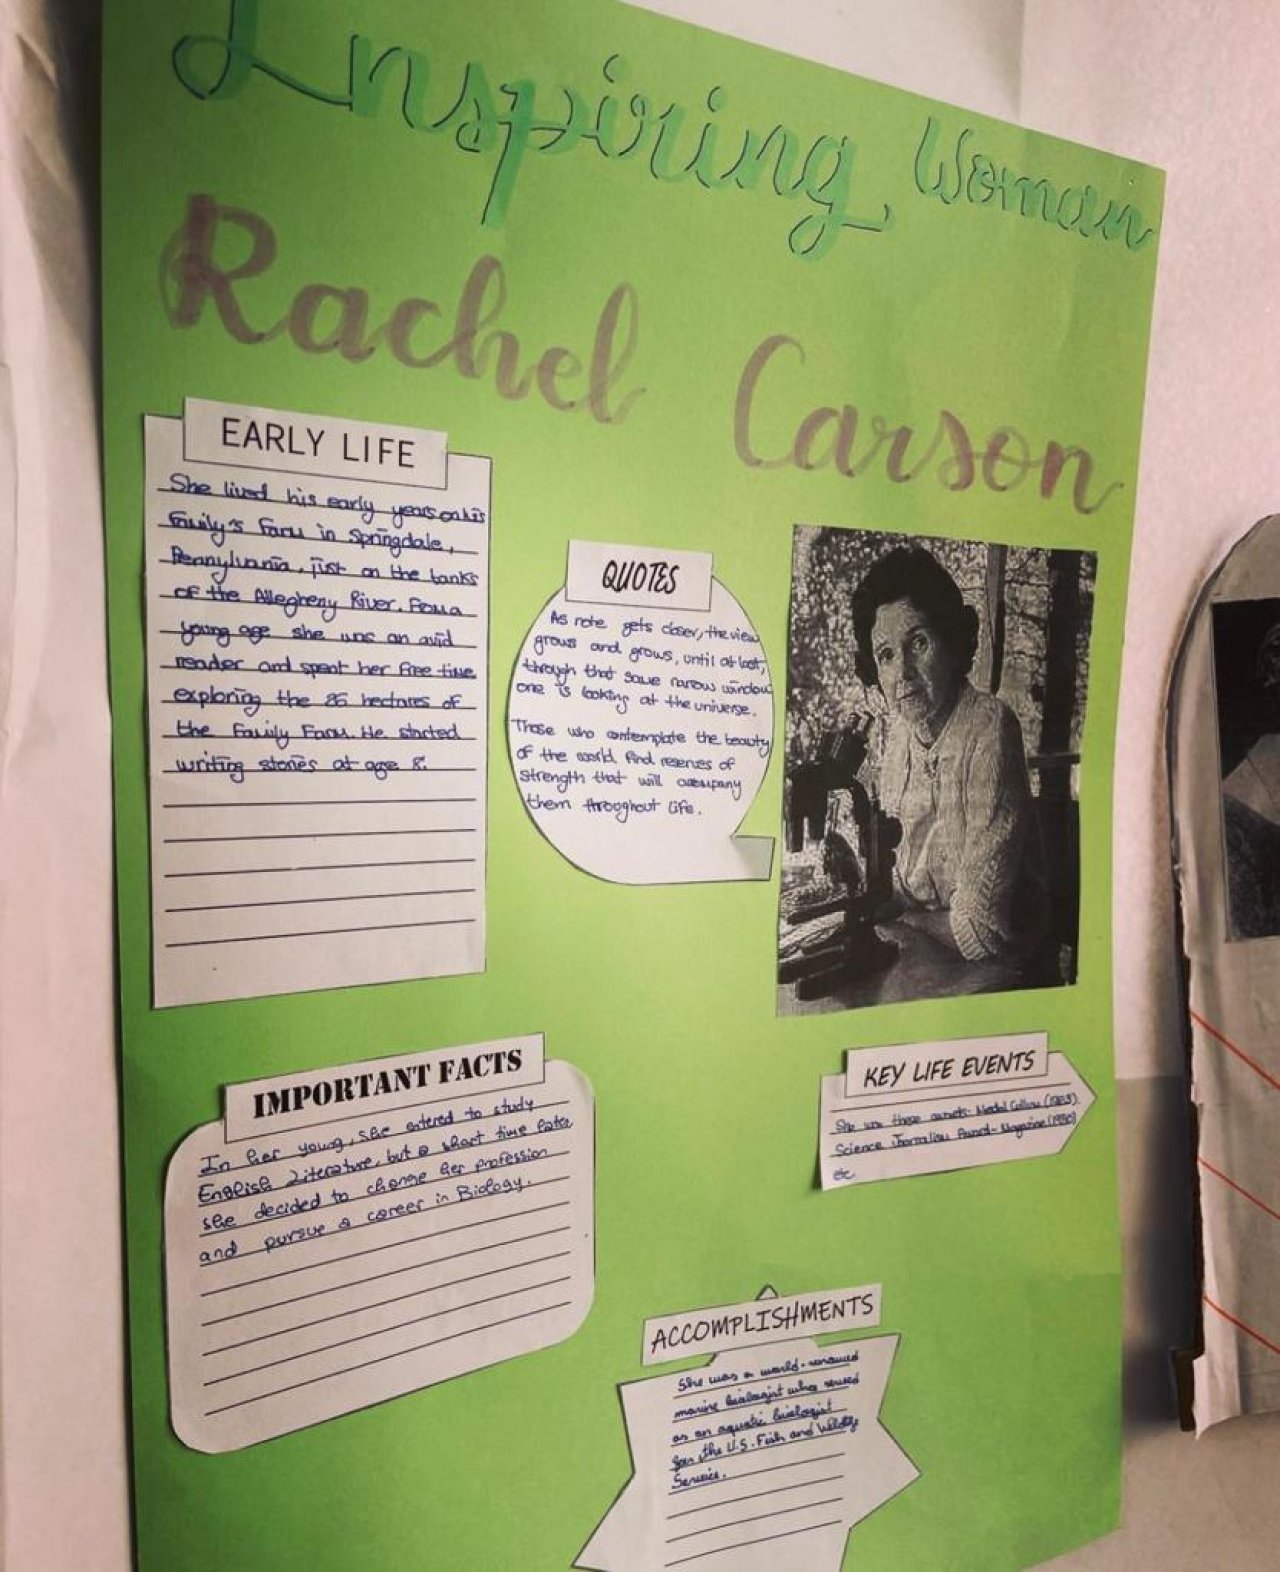 Inspiring Woman
Rachel Carson
EARLY LIFE
She lived his early years on his
family's farm in Springdale,
Pennylvania, just on the banks
of the Allegheny River. From a
young age she was an avid
reader and spent her free time
exploring the 26 hectares of
the family farm. He started
writing stories at age 8.
QUOTES
As note gets closer, the view
grows and grows, until at last,
through that same narrow window
one is looking at the universe.
Those who contemplate the beauty
of the world, find reserves of
strength that will accompany
them throoghout life.
IMPORTANT FACTS
In her young, she entered to study
English Literature, but a short time later,
she decided to change her profession
and pursue a career in Biology.
KEY LIFE EVENTS
She was these awards: Medal
Science Journalism Award - Magazine (1950)
etc
ACCOMPLISHMENTS
She was a world-renowned
marine biologist who served
as an aquatic biologist
for the U.S. Fish and Wildlife
Service.